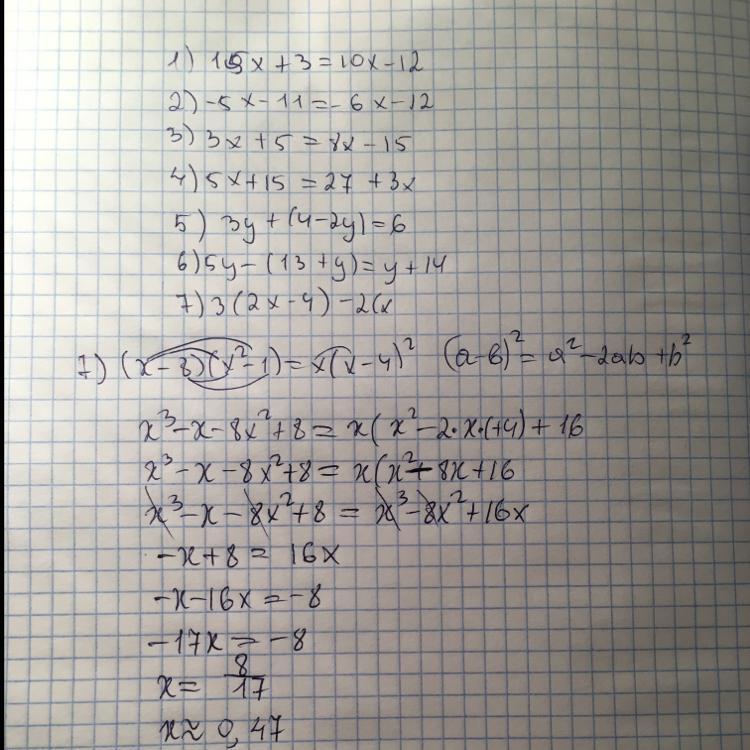 1) 15x + 3 = 10x - 12
2) -5x - 11 = -6x - 12
3) 3x + 5 = 8x - 15
4) 5x + 15 = 27 + 3x
5) 3y + (4 - 2y) = 6
6) 5y - (13 + y) = y + 14
7) 3(2x - 4) - 2(x
7) (x - 8)(x² - 1) = x(x - 4)² (a - b)² = a² - 2ab + b²
x³ - x - 8x² + 8 = x(x² - 2·x·(+4) + 16
x³ - x - 8x² + 8 = x(x² - 8x + 16
x³ - x - 8x² + 8 = x³ - 8x² + 16x
-x + 8 = 16x
-x - 16x = -8
-17x = -8
x = 8/17
x ≈ 0,47